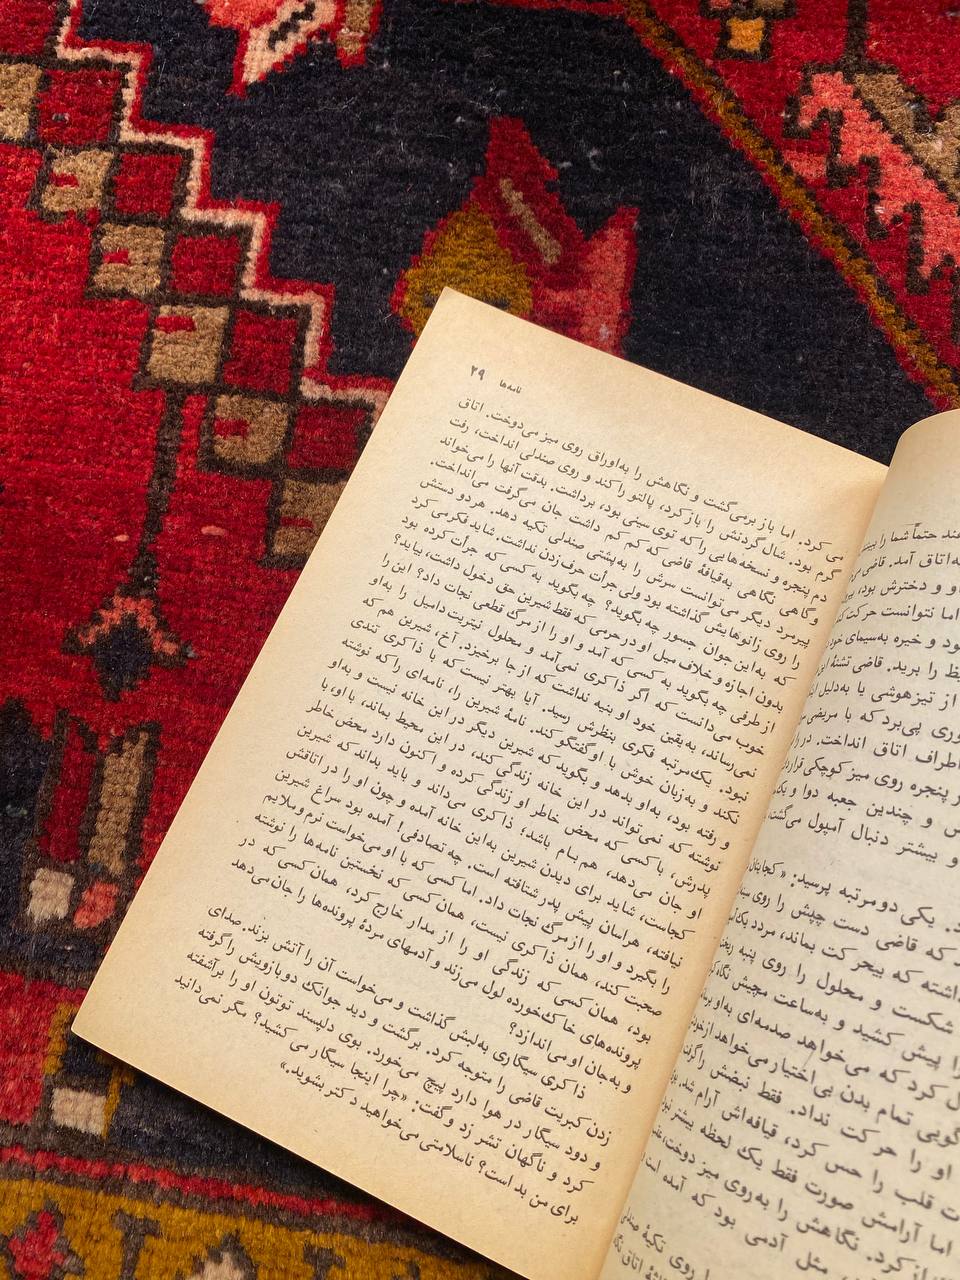 نامه‌ها ۲۹
می‌کرد. اما باز برمی‌گشت و نگاهش را به‌اوراق روی میز می‌دوخت. اتاق
گرم بود. شال گردنش را باز کرد، پالتو را کند و روی صندلی انداخت، رفت
دم پنجره و نسخه‌هایی را که توی سینی بود، برداشت. بدقت آنها را می‌خواند
و گاهی نگاهی به‌قیافهٔ قاضی که کم کم داشت جان می‌گرفت می‌انداخت.
پیرمرد دیگر می‌توانست سرش را به‌پشتی صندلی تکیه دهد. هر دو دستش
را روی زانوهایش گذاشته بود ولی جرأت حرف زدن نداشت. شاید فکر می‌کرد
که به‌این جوان جسور چه بگوید؟ چه بگوید به کسی که جرأت کرده بود
بدون اجازه و خلاف میل او در حرمی که فقط شیرین حق دخول داشت، بیاید؟
از طرفی چه بگوید به کسی که آمد و او را از مرگ قطعی نجات داد؟ این را
خوب می‌دانست که اگر ذاکری نمی‌آمد و محلول نیتریت دامیل را به‌او
نمی‌رساند، به‌یقین خود او بنیه نداشت که از جا برخیزد. آخ، شیرین هم که
نبود. یک‌مرتبه فکری بنظرش رسید. آیا بهتر نیست که با ذاکری تندی
نکند و به‌زبان خوش با او گفتگو کند. نامهٔ شیرین را، نامه‌ای را که نوشته
و رفته بود، به‌او بدهد و بگوید که شیرین دیگر در این خانه نیست و به‌او
نوشته که نمی‌تواند در این خانه زندگی کند، در این محیط بماند، با او، با
پدرش، با کسی که محض خاطر او زندگی کرده و اکنون دارد محض خاطر
او جان می‌دهد، هم‌بام باشد؛ ذاکری می‌داند و باید بداند که شیرین
کجاست، شاید برای دیدن شیرین به‌این خانه آمده و چون او را در اتاقش
نیافته، هراسان پیش پدر شتافته است. چه تصادفی! آمده بود سراغ شیرین
را بگیرد و او را از مرگ نجات داد. اما کسی که با او می‌خواست نرم و ملایم
صحبت کند، همان ذاکری نیست، همان کسی که نخستین نامه‌ها را نوشته
بود، همان کسی که زندگی او را از مدار خارج کرد، همان کسی که در
پرونده‌های خاک‌خورده لول می‌زند و آدمهای مردهٔ پرونده‌ها را جان می‌دهد
و به‌جان او می‌اندازد؟
ذاکری سیگاری به‌لبش گذاشت و می‌خواست آن را آتش بزند. صدای
زدن کبریت قاضی را متوجه کرد. برگشت و دید جوانک دو بازویش را گرفته
و دود سیگار در هوا دارد پیچ می‌خورد. بوی دلپسند توتون او را برآشفته
کرد و ناگهان تشر زد و گفت: «چرا اینجا سیگار می‌کشید؟ مگر نمی‌دانید
برای من بد است؟ ناسلامتی می‌خواهید دکتر بشوید.»
حتماً شما را
اتاق آمد. قاضی
او و دخترش بود،
اما نتوانست حرکت
بود و خیره به‌سیمای خود
را برید. قاضی تشنهٔ
از تیزهوشی یا به‌دلیل
پی‌برد که با مریضی
اطراف اتاق انداخت.
پنجره روی میز کوچکی قرار
و چندین جعبه دوا و
و بیشتر دنبال آمپول می‌گشت
یکی دو مرتبه پرسید:
که قاضی دست چپش را روی
که بیحرکت بماند، مردد
شکست و محلول را روی پنبه
را پیش کشید و به‌ساعت مچیش
کرد که می‌خواهد صدمه‌ای به‌او
گویی تمام بدن بی‌اختیار می‌خواهد از
او را حرکت نداد. فقط نبضش را
قلب را حس کرد، قیافه‌اش آرام شد.
اما آرامش صورت فقط یک لحظه بیشتر
کرد. نگاهش را به‌روی میز دوخت،
مثل آدمی بود که آمده است
را روی تکیهٔ